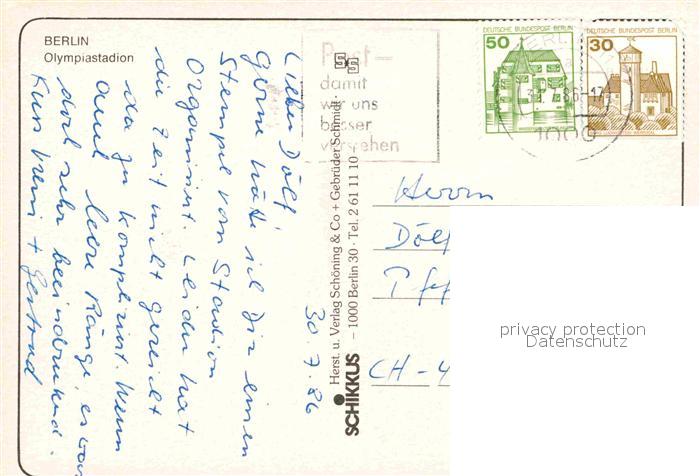 BERLIN
Olympiastadion
Lieber Dölf,
Gerne hätte ich Dir einen
Stempel vom Stadion
Organisiert. Leider hat
die Zeit nicht gereicht
da zu kompliziert. Wenn
auch leere Ränge, es war
doch sehr beeindruckend.
Kuss Vreni + Gertrud
30.7.86
Post –
damit
wir uns
besser
verstehen
Herst. u. Verlag Schöning & Co + Gebrüder Schmidt
SCHIKKUS – 1000 Berlin 30 · Tel. 2 61 11 10
50
DEUTSCHE BUNDESPOST BERLIN
30
DEUTSCHE BUNDESPOST BERLIN
86-17
1000
Herrn
Dölf
Pf
CH-4
privacy protection
Datenschutz